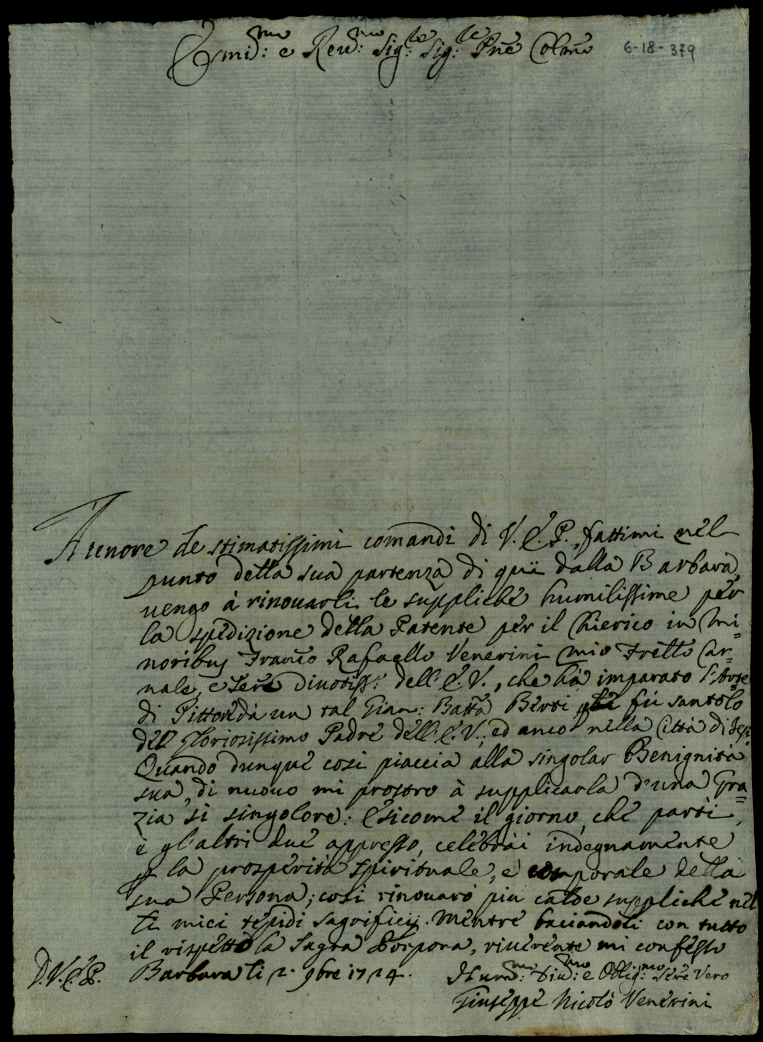 Emi:mo e Reu:mo Sig:re Sig:re Pne Colmo 6-18-379
A tenore de stimatissimi comandi di V.E.P. fattimi nel
punto della sua partenza di quì dalla Barbara,
uengo à rinouarli le suppliche humilissime per
la spedizione della Patente per il Chierico in Mi=
noribus Franco Rafaello Venerini mio Frello Car=
nale, e Serë diuotiss: dell'E.V., che hà imparato l'Arte
di Pittore da un tal Gian: Batta Berti fù santolo
del Gloriosissimo Padre dell'E.V., ed anco nella Città di Jesi
Quando dunque così piaccia alla singolar Benignità
sua, di nuouo mi prostro à supplicarla d'una Gra=
zia si singolore: E sicome il giorno, che partì,
e gl'altri due appresso, celebrai indegnamente
p la prosperità spirituale, e temporale della
sua Persona; così rinouarò piu calde suppliche nel
li miei tepidi sagrificij. Mentre baciandoli con tutto
il rispetto la Sagra Porpora, riuerente mi confesso
D.V.E.P. Barbara li 2. 9bre 1724. Hum:mo Diu:mo e Oblig:mo Serë Vero
Giuseppe Nicolò Venerini